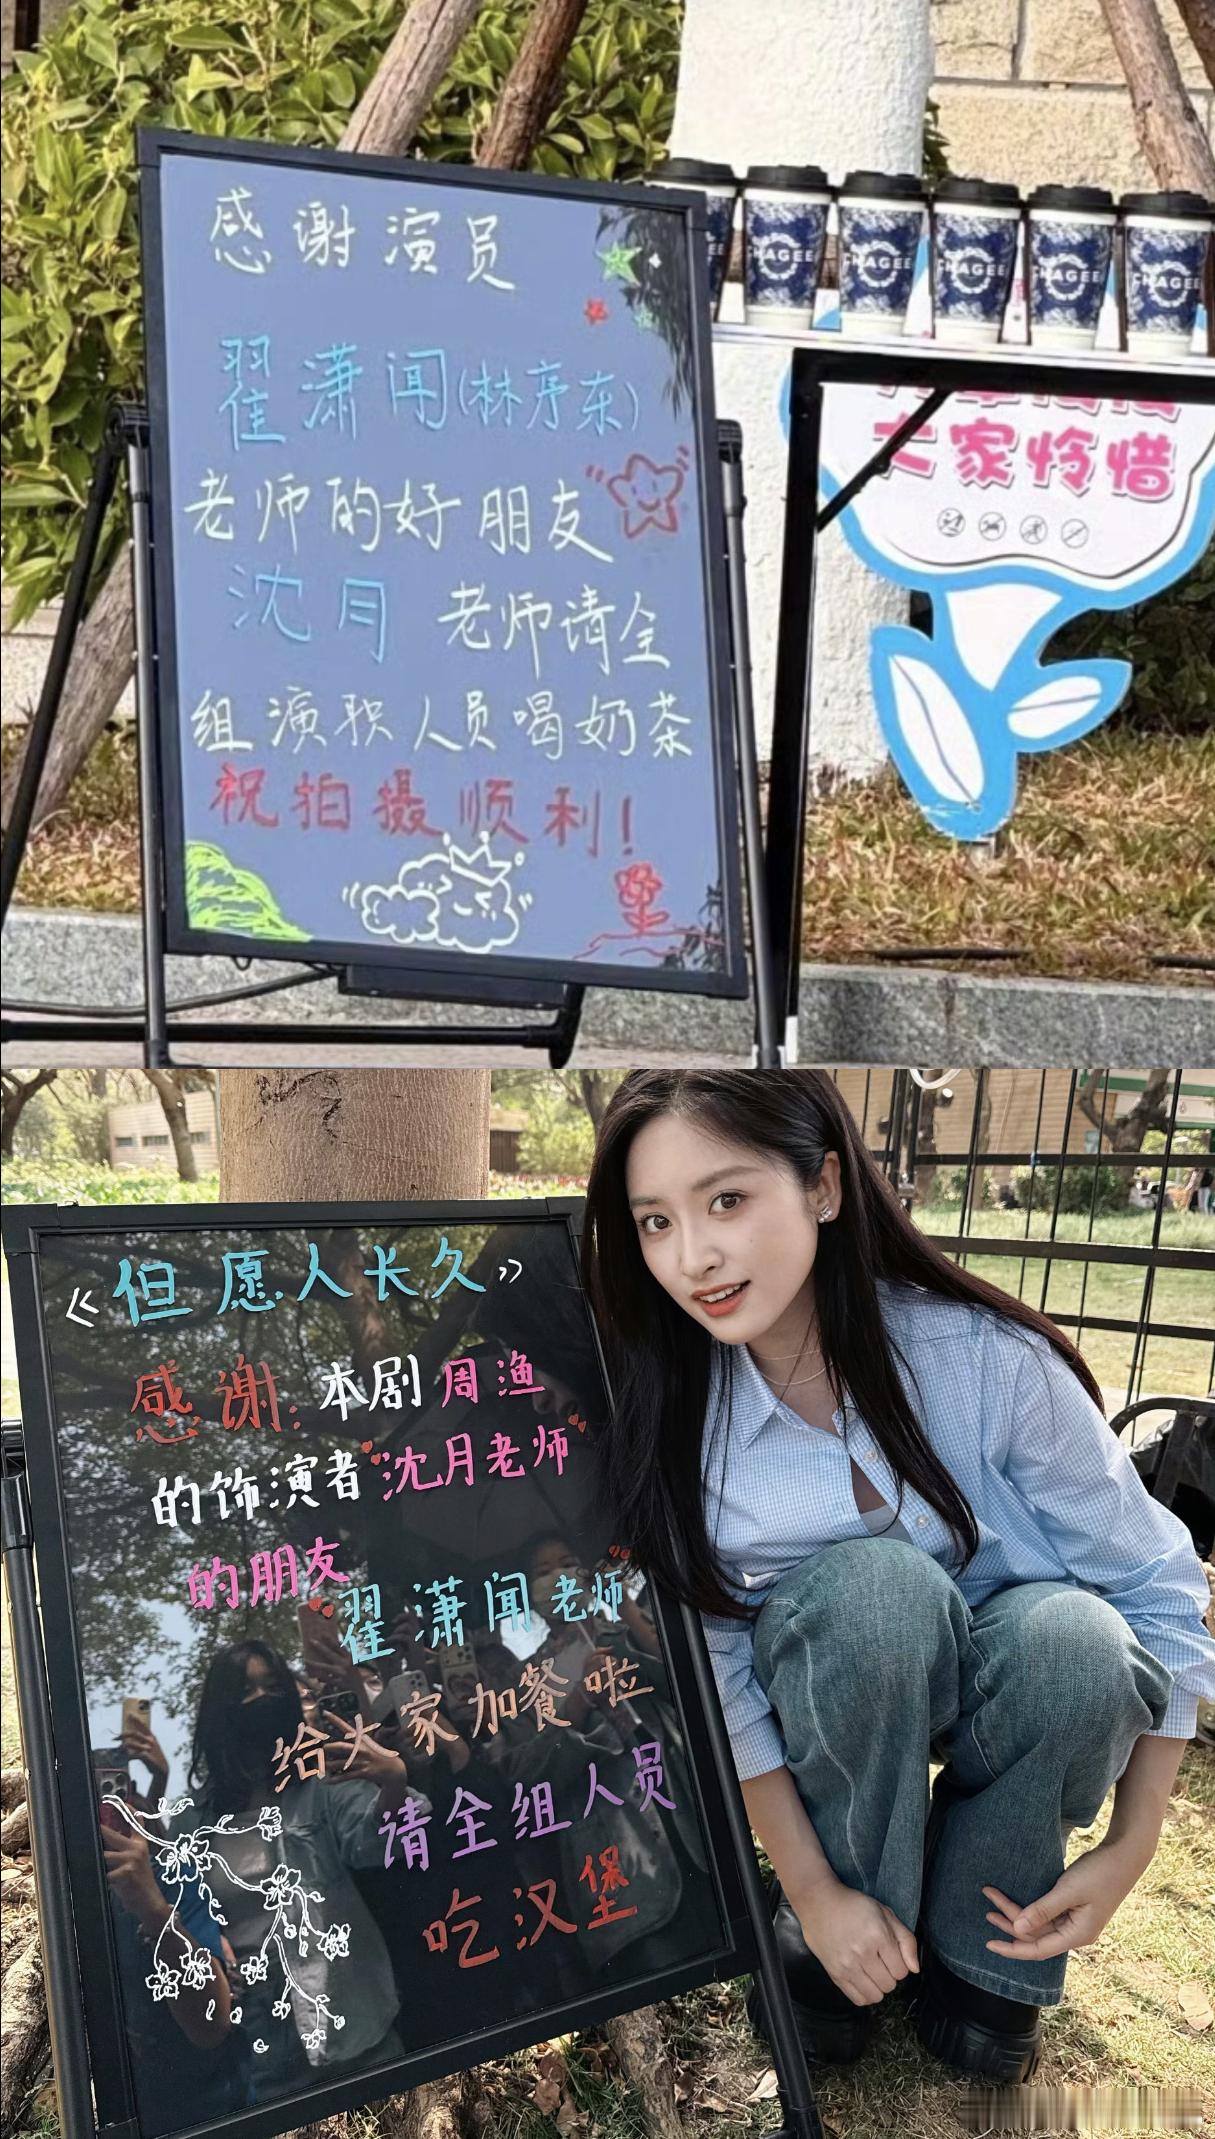 感谢演员
翟潇闻(林序东)
老师的好朋友
沈月 老师请全
组演职人员喝奶茶
祝拍摄顺利!
CHAGEE
CHAGEE
CHAGEE
CHAGEE
大家怜惜
《但愿人长久》
感谢:本剧周渔
的饰演者沈月老师
的朋友
翟潇闻老师
给大家加餐啦
请全组人员
吃汉堡